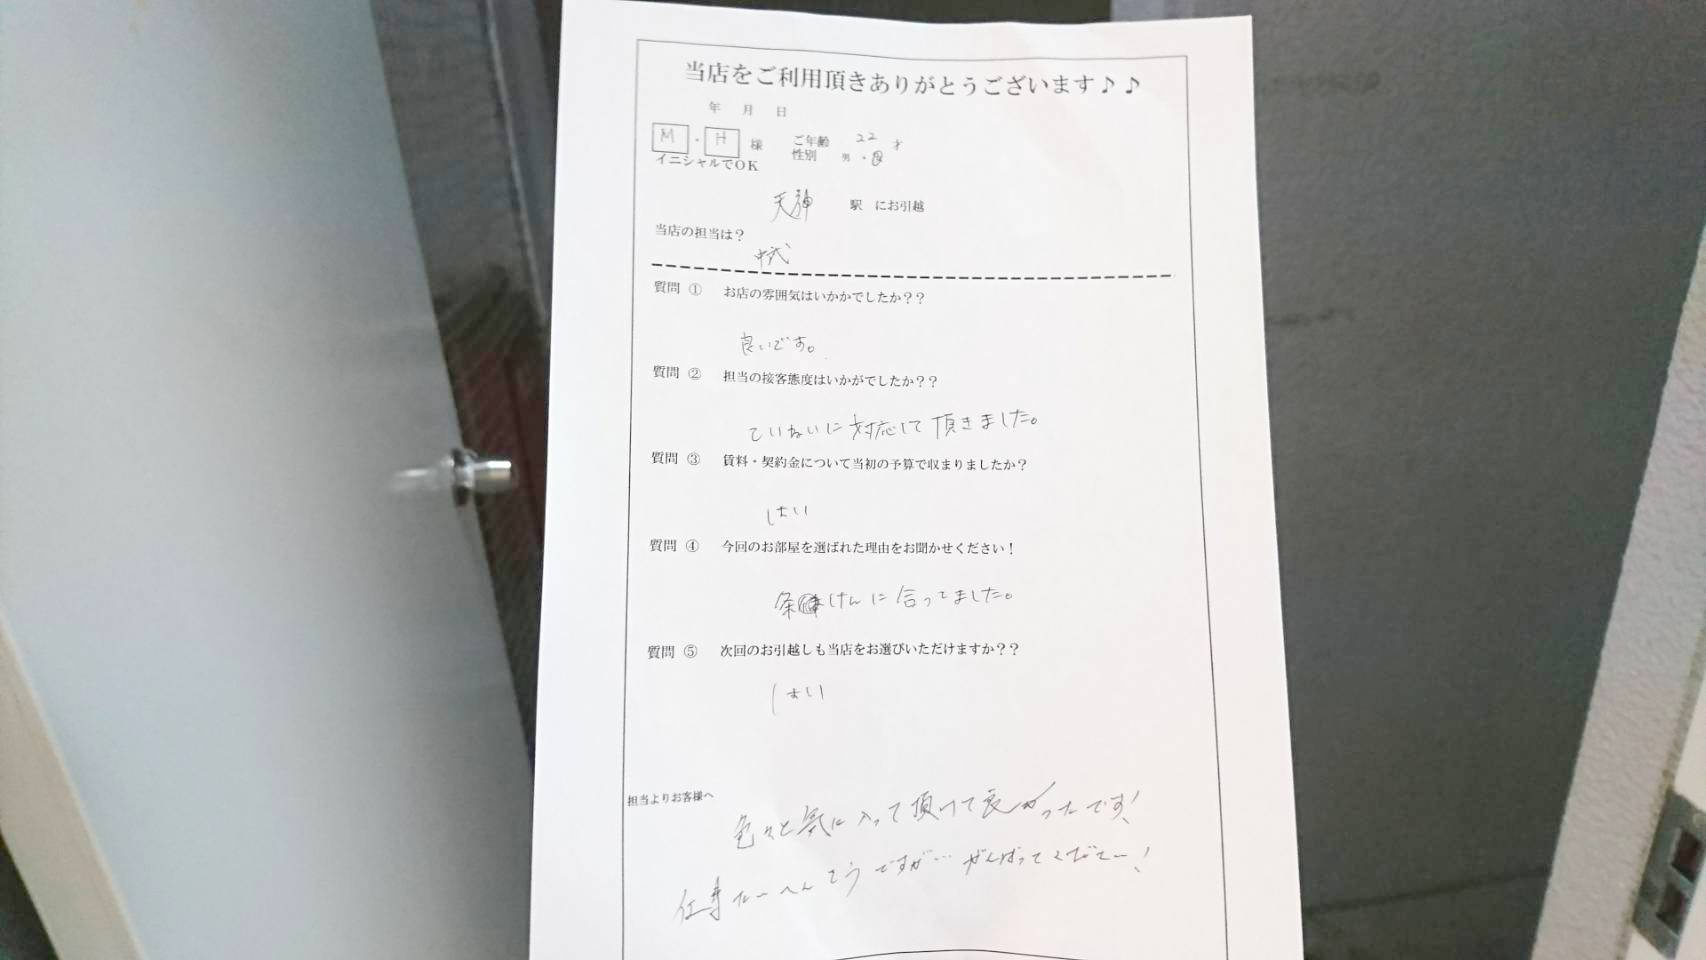 当店をご利用頂きありがとうございます♪♪
年 月 日
M・H 様 ご年齢 22 才
イニシャルでOK 性別 男・女
天神 駅 にお引越
当店の担当は？
質問 ① お店の雰囲気はいかかでしたか？？
良いです。
質問 ② 担当の接客態度はいかがでしたか？？
ていねいに対応して頂きました。
質問 ③ 賃料・契約金について当初の予算で収まりましたか？
はい
質問 ④ 今回のお部屋を選ばれた理由をお聞かせください！
条けんに合ってました。
質問 ⑤ 次回のお引越しも当店をお選びいただけますか？？
はい
担当よりお客様へ
色々と気に入って頂けて良かったです！
仕事たいへんそうですが…がんばってくださいー！